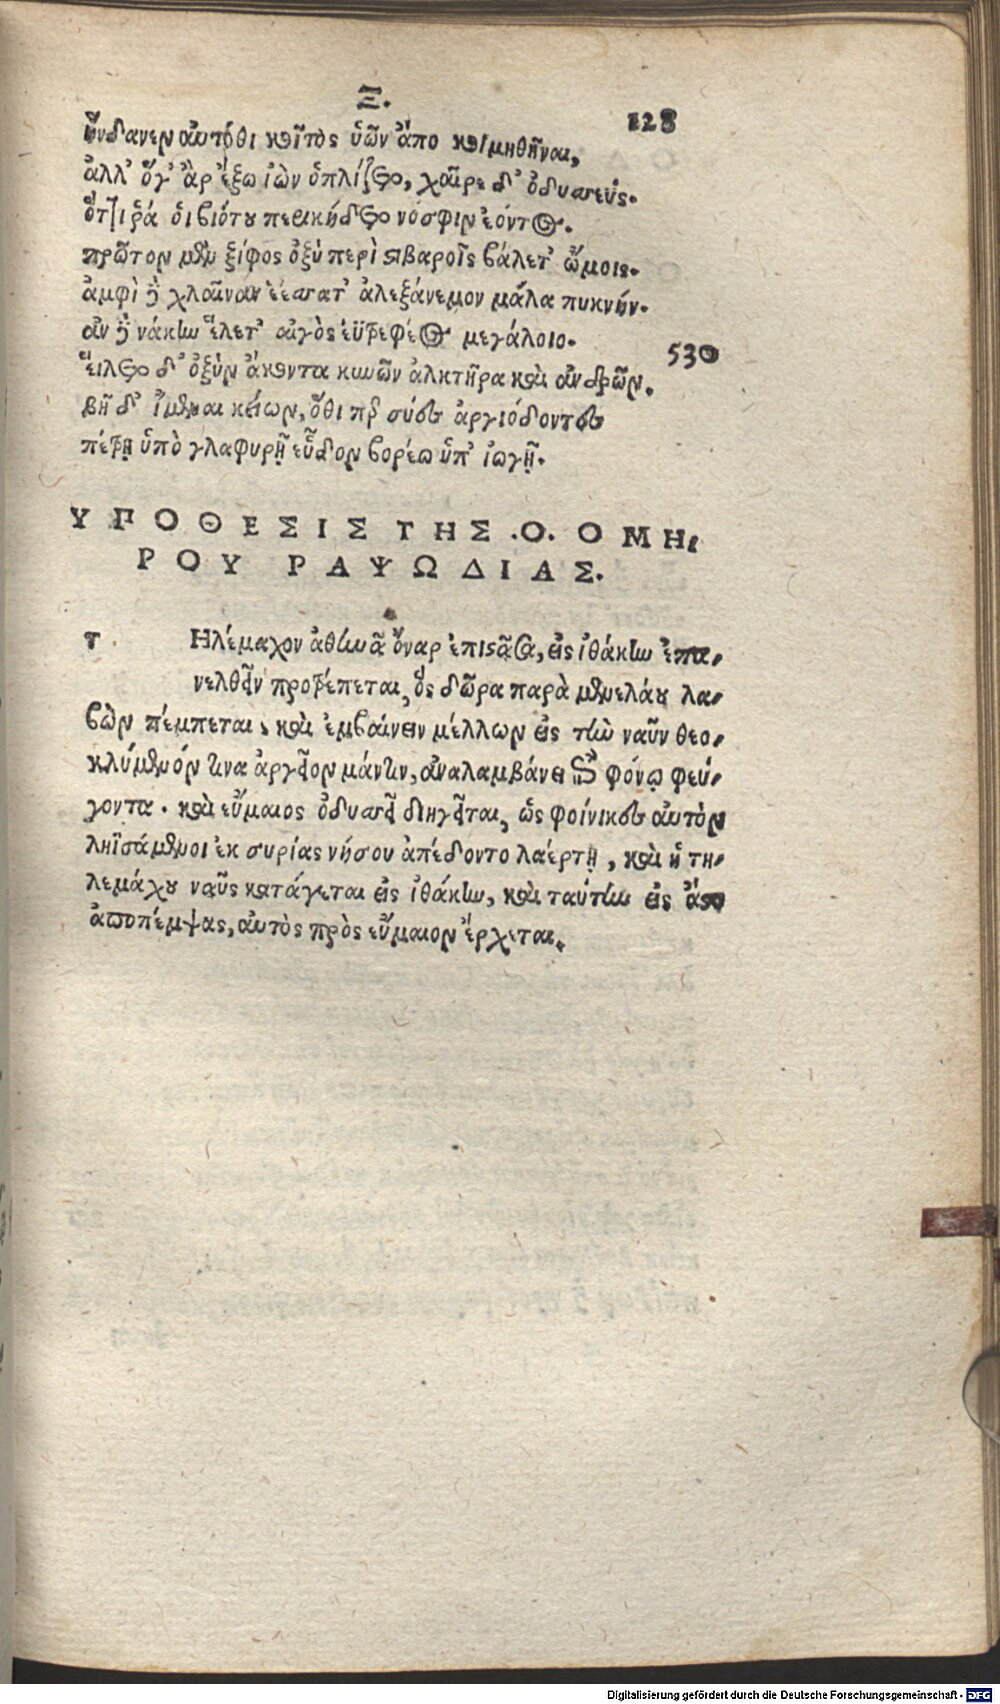 Ξ.
128
ἥνδανεν αὐτόθι κοῖτος ὑῶν ἄπο κοιμηθῆναι,
ἀλλ' ὅγ' ἂρ ἔξω ἰὼν ὁπλίζετο, χαῖρε δ' ὀδυσσεύς.
ὅττι ῥά οἱ βιότου περικήδετο νόσφιν ἐόντος.
πρῶτον μὲν ξίφος ὀξὺ περὶ στιβαροῖς βάλετ' ὤμοις.
ἀμφὶ δὲ χλαῖναν ἑέσσατ' ἀλεξάνεμον μάλα πυκνήν.
ἂν δὲ νάκην ἕλετ' αἰγὸς ἐϋτρεφέος μεγάλοιο.
530
εἵλετο δ' ὀξὺν ἄκοντα κυνῶν ἀλκτῆρα καὶ ἀνδρῶν.
βῆ δ' ἴμεναι κείων, ὅθι περ σύες ἀργιόδοντες
πέτρῃ ὑπὸ γλαφυρῇ εὗδον βορέω ὑπ' ἰωγῇ.
ΥΠΟΘΕΣΙΣ ΤΗΣ .Ο. ΟΜΗ-
ΡΟΥ ΡΑΨΩΔΙΑΣ.
τ Ηλέμαχον ἀθηνᾶ ὄναρ ἐπιστᾶσα, εἰς ἰθάκην ἐπα-
νελθεῖν προτρέπεται, ὃς δῶρα παρὰ μενελάου λα-
βὼν πέμπεται, καὶ ἐμβαίνειν μέλλων εἰς τὴν ναῦν θεο-
κλύμενόν τινα ἀργεῖον μάντιν, ἀναλαμβάνει ἐπὶ φόνῳ φεύ-
γοντα. καὶ εὔμαιος ὀδυσσεῖ διηγεῖται, ὡς φοίνικες αὐτὸν
ληϊσάμενοι ἐκ συρίας νήσου ἀπέδοντο λαέρτῃ, καὶ ἡ τη-
λεμάχου ναῦς κατάγεται εἰς ἰθάκην, καὶ ταύτην εἰς ἄστυ
ἀποπέμψας, αὐτὸς πρὸς εὔμαιον ἔρχεται.
Digitalisierung gefördert durch die Deutsche Forschungsgemeinschaft - DFG